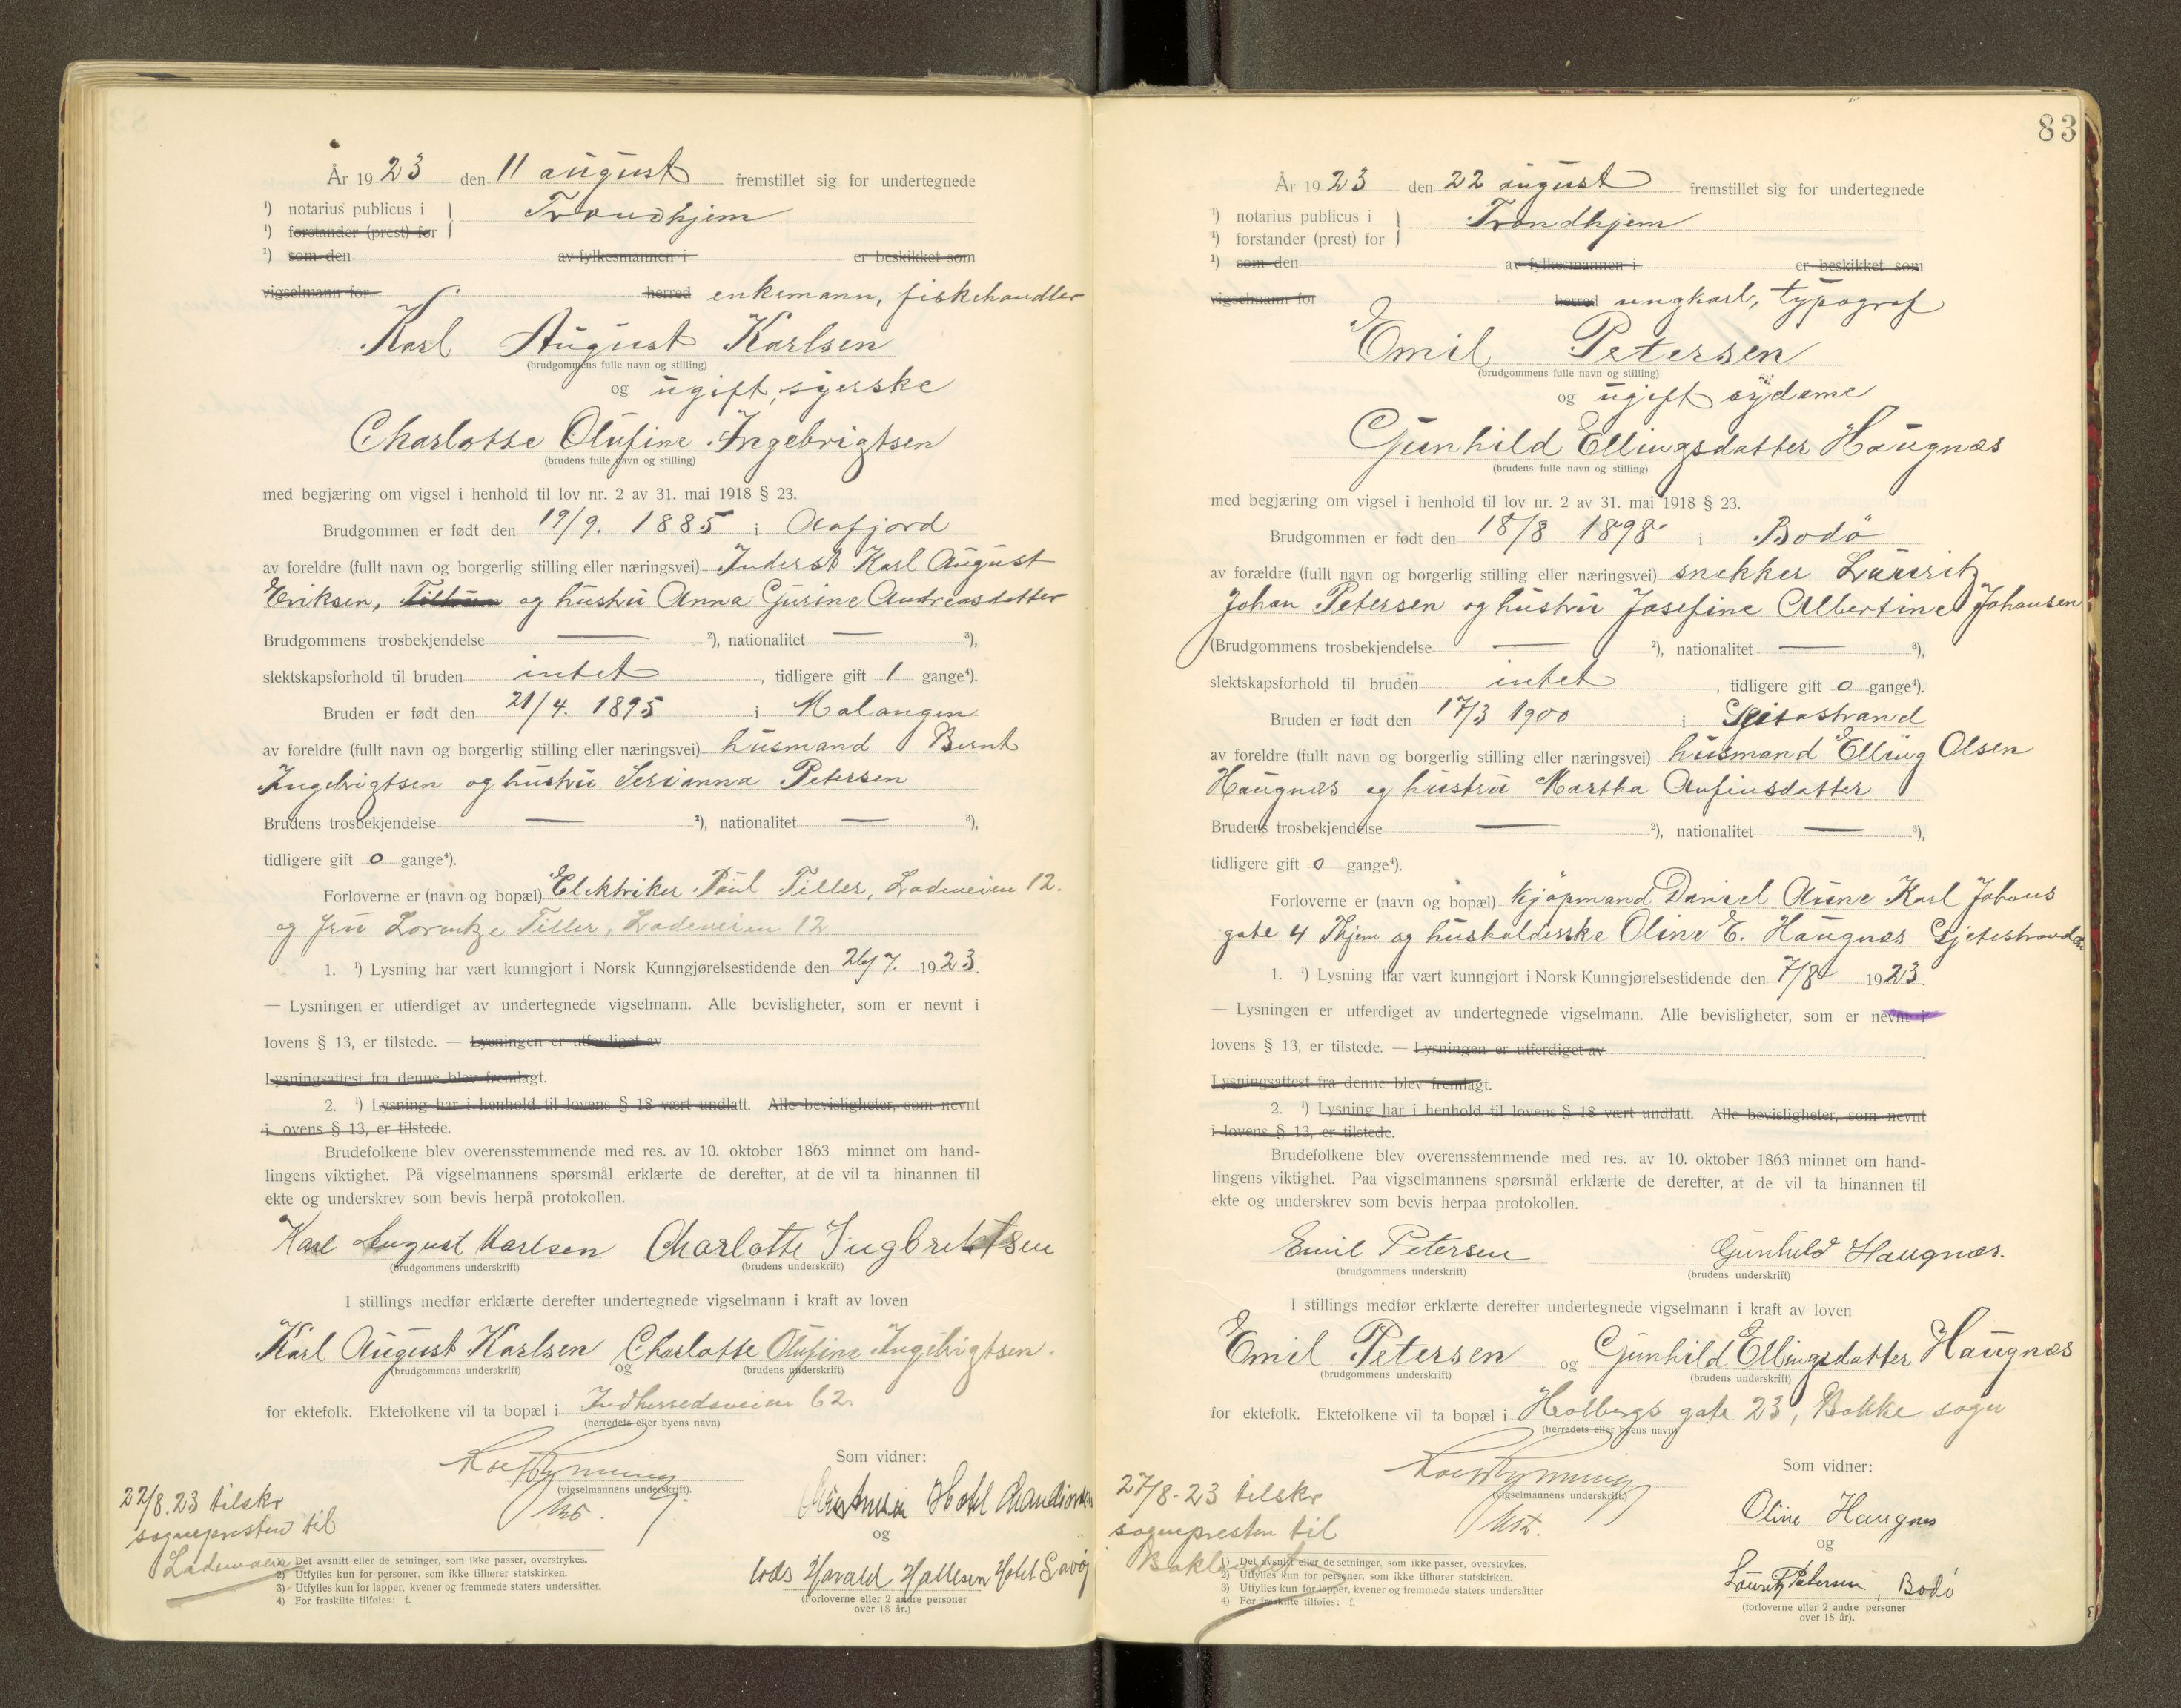 År 1923 den 11 august fremstillet sig for undertegnede
¹) notarius publicus i
Trondhjem
¹) forstander (prest) for
¹) som den av fylkesmannen i er beskikket som
vigselmann for herred enkemann, fiskehandler
Karl August Karlsen
(brudgommens fulle navn og stilling)
og ugift, syerske
Charlotte Olufine Ingebrigtsen
(brudens fulle navn og stilling)
med begjæring om vigsel i henhold til lov nr. 2 av 31. mai 1918 § 23.
Brudgommen er født den 19/9. 1885 i Aafjord
av foreldre (fullt navn og borgerlig stilling eller næringsvei) Inderst Karl August
Eriksen, og hustru Anna Gurine Andreasdatter
Brudgommens trosbekjendelse — ²), nationalitet — ³),
slektskapsforhold til bruden intet, tidligere gift 1 gange⁴).
Bruden er født den 21/4. 1895 i Malangen
av foreldre (fullt navn og borgerlig stilling eller næringsvei) husmand Bernt
Ingebrigtsen og hustru Serianna Petersen
Brudens trosbekjendelse — ²), nationalitet — ³),
tidligere gift 0 gange⁴).
Forloverne er (navn og bopæl) Elektriker Paul Tiller, Ladeveien 12.
og fru Lorentze Tiller, Ladeveien 12
1. ¹) Lysning har vært kunngjort i Norsk Kunngjørelsestidende den 26/7. 1923.
— Lysningen er utferdiget av undertegnede vigselmann. Alle bevisligheter, som er nevnt i
lovens § 13, er tilstede. — Lysningen er utferdiget av
Lysningsattest fra denne blev fremlagt.
2. ¹) Lysning har i henhold til lovens § 18 vært undlatt. Alle bevisligheter, som nevnt
i ovens § 13, er tilstede.
Brudefolkene blev overensstemmende med res. av 10. oktober 1863 minnet om hand-
lingens viktighet. På vigselmannens spørsmål erklærte de derefter, at de vil ta hinannen til
ekte og underskrev som bevis herpå protokollen.
Karl August Karlsen Charlotte Ingbrektsen
(brudgommens underskrift) (brudens underskrift)
I stillings medfør erklærte derefter undertegnede vigselmann i kraft av loven
Karl August Karlsen og Charlotte Olufine Ingebrigtsen.
(brudgommens underskrift) (brudens underskrift)
for ektefolk. Ektefolkene vil ta bopæl i Indherredsveien 62.
(herredets eller byens navn)
Som vidner:
(vigselmannens underskrift).
Hotel
og
lods Harald Hallesen Hotel Savoy
(Forloverne eller 2 andre personer
over 18 år.)
22/8.23 tilskr
sognepresten til
Lademoen
1) Det avsnitt eller de setninger, som ikke passer, overstrykes.
2) Utfylles kun for personer, som ikke tilhører statskirken.
3) Utfylles kun for lapper, kvener og fremmede staters undersåtter.
4) For fraskilte tilføies: f.
83
År 1923 den 22 august fremstillet sig for undertegnede
¹) notarius publicus i
Trondhjem
¹) forstander (prest) for
¹) som den av fylkesmannen i er beskikket som
vigselmann for herred ungkarl, typograf
Emil Petersen
(brudgommens fulle navn og stilling)
og ugift sydame
Gunhild Ellingsdatter Haugnæs
(brudens fulle navn og stilling)
med begjæring om vigsel i henhold til lov nr. 2 av 31. mai 1918 § 23.
Brudgommen er født den 18/8 1898 i Bodö
av forældre (fullt navn og borgerlig stilling eller næringsvei) snekker Lauritz
Johan Petersen og hustru Josefine Albertine Johansen
(Brudgommens trosbekjendelse — ²), nationalitet — ³),
slektskapsforhold til bruden intet, tidligere gift 0 gange⁴).
Bruden er født den 17/3 1900 i
av foreldre (fullt navn og borgerlig stilling eller næringsvei) husmand Elling Olsen
Haugnæs og hustru Martha Anfinsdatter
Brudens trosbekjendelse — ²), nationalitet — ³),
tidligere gift 0 gange⁴).
Forloverne er (navn og bopæl) kjöpmand Daniel Aune Karl Johans
gate 4 Thjem og husholderske Oline E. Haugnæs
1. ¹) Lysning har vært kunngjort i Norsk Kunngjørelsestidende den 7/8 1923.
— Lysningen er utferdiget av undertegnede vigselmann. Alle bevisligheter, som er nevnt i
lovens § 13, er tilstede. — Lysningen er utferdiget av
Lysningsattest fra denne blev fremlagt.
2. ¹) Lysning har i henhold til lovens § 18 vært undlatt. Alle bevisligheter, som nevnt
i lovens § 13, er tilstede.
Brudefolkene blev overensstemmende med res. av 10. oktober 1863 minnet om hand-
lingens viktighet. Paa vigselmannens spørsmål erklærte de derefter, at de vil ta hinannen til
ekte og underskrev som bevis herpaa protokollen.
Emil Petersen Gunhild Haugnæs.
(brudgommens underskrift) (brudens underskrift)
I stillings medfør erklærte derefter undertegnede vigselmann i kraft av loven
Emil Petersen og Gunhild Ellingsdatter Haugnæs
(brudgommens underskrift) (brudens underskrift)
for ektefolk. Ektefolkene vil ta bopæl i Holbergs gate 23, Bakke sogn
(herredets eller byens navn)
Som vidner:
(vigselmannens underskrift.)
Oline Haugnes
og
Lauritz Petersen, Bodö
(forloverne eller 2 andre personer
over 18 år).
27/8-23 tilskr
sognepresten til
Baklandet
1) Det avsnitt eller de setninger, som ikke passer, overstrykes.
2) Utfylles kun for personer, som ikke tilhører statskirken.
3) Utfylles kun for lapper, kvener og fremmede staters undersåtter
4) For fraskilte tilføies: f.